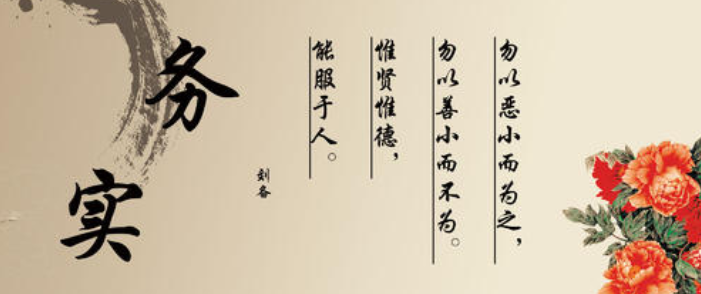 务
实
勿以恶小而为之，
勿以善小而不为。
惟贤惟德，
能服于人。
刘备